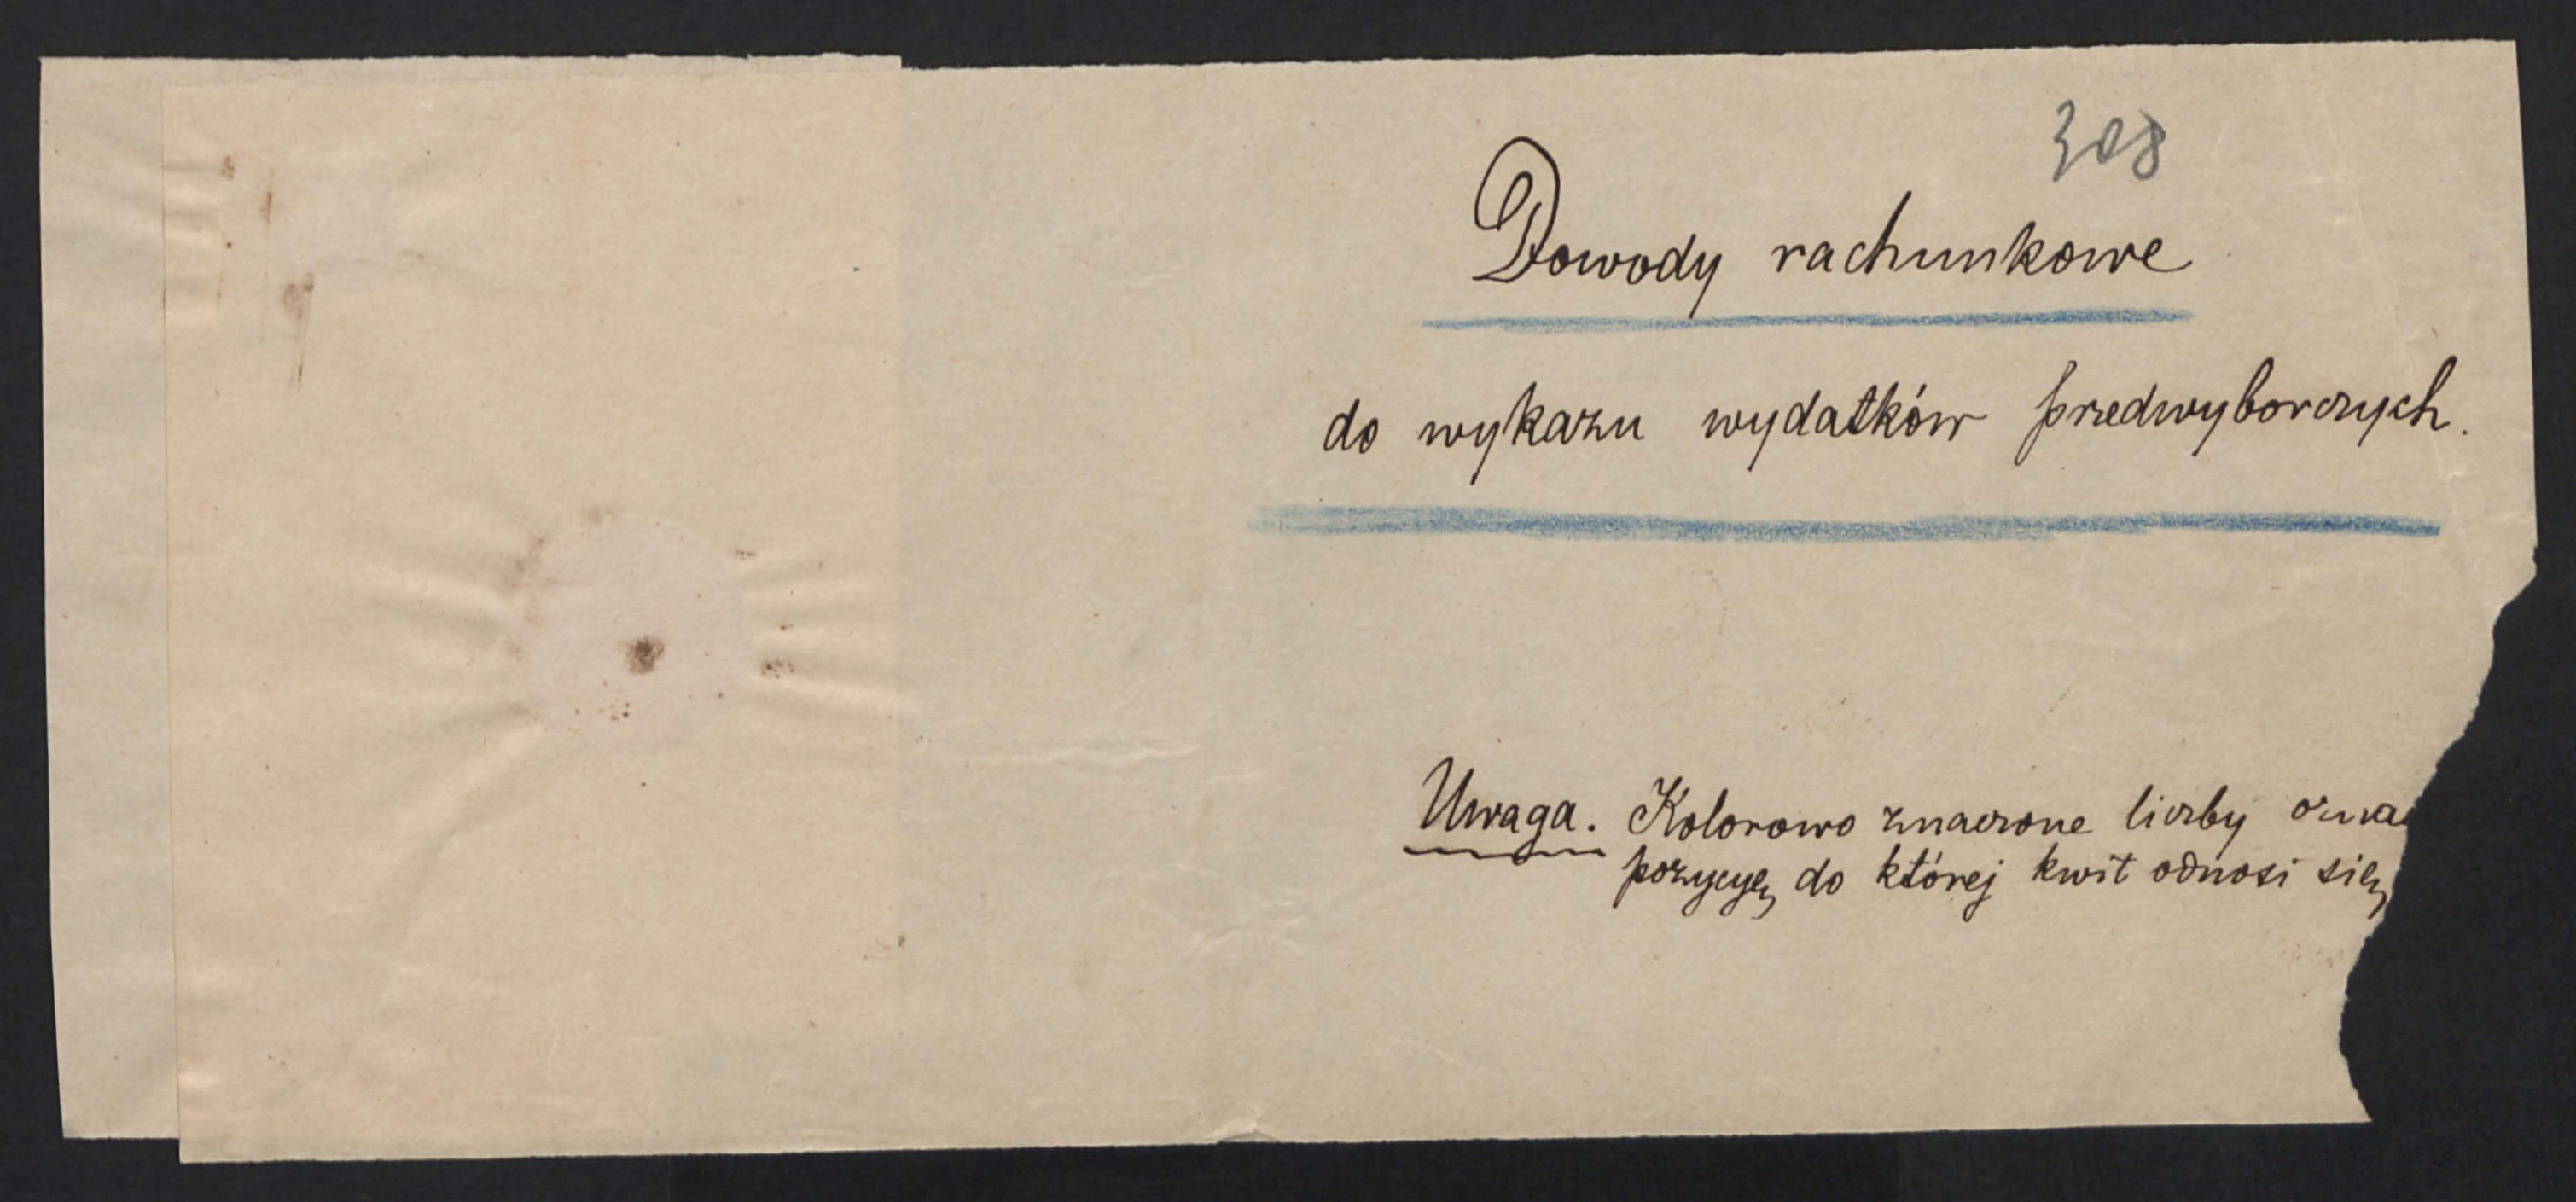 308
Dowody rachunkowe
do wykazu wydatków przedwyborczych.
Uwaga. Kolorowo znaczone liczby ozna
pozycyę, do której kwit odnosi się